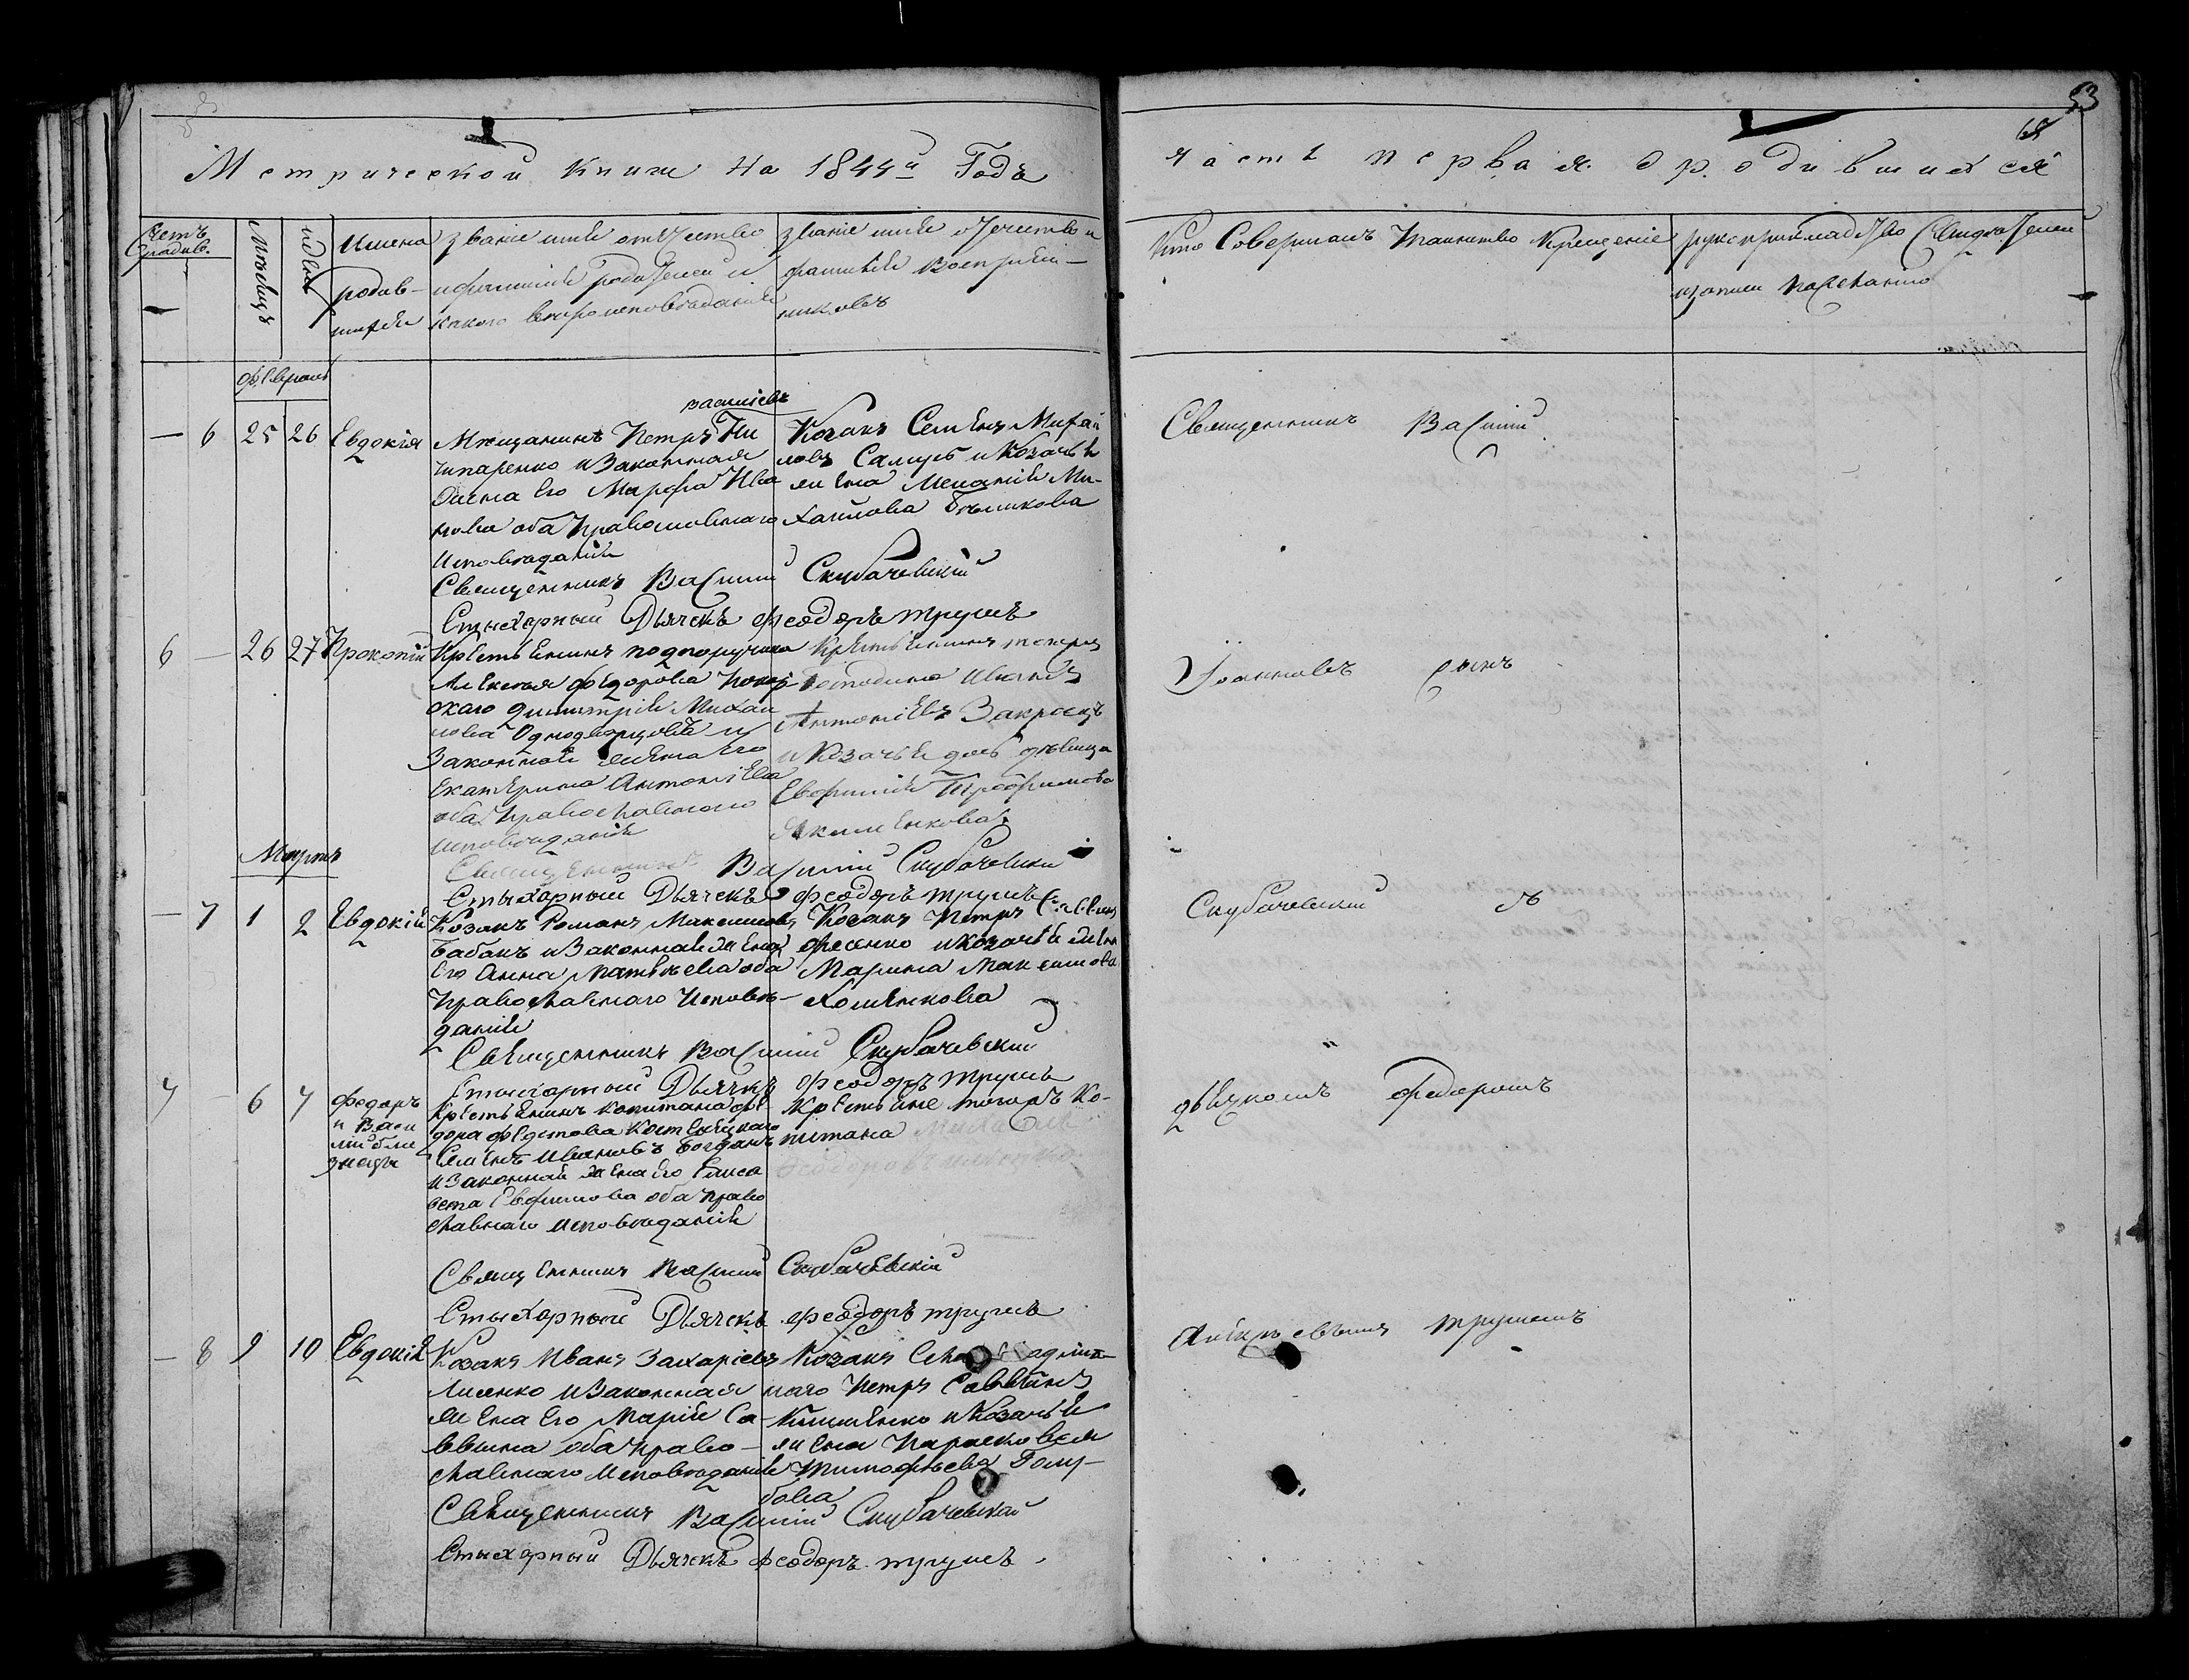 53
68
Метрической книги На 1844й Годъ
часть первая о родившихся
Счетъ родив.
Мѣсяцъ
и день
Имена родив-
шихся
званіе имя отчество
и фамилія родителей и
какого вѣроисповѣданія
званіе имя отчество и
фамилія восприем-
никовъ
Кто Совершалъ Таинство Крещенія
рукоприкладство Свидѣтелей
записи по желанію
Февраль
— 6 25 26 Евдокія
васильевъ
Мещанинъ Петръ Ни
чипаренко и Законная
Жена Его Марфа Ива
нова оба Православнаго
Исповѣданія
Козакъ Семенъ Михай
ловъ Самусь и Козачья
жена Меланія Ми-
хайлова
Священникъ Василій Скубачевскій
Стыхарный Дьячекъ Феодоръ Трушъ
6 — 26 27 Прокопій
Крестьянинъ подпоручика
Алексея Федорова
Димитрій Михай
лова и
Законная жена Его
Екатерина Антоніева
оба Православнаго
исповѣданія
Крестьянинъ тогожъ
Господина
Антоніевъ
и Козачья дочь девица
Евфимія Трофимова
Якименкова
Священникъ Василій Скубачевскій
Стыхарный Дьячекъ Феодоръ Трушъ
Мартъ
— 7 1 2 Евдокія
Козакъ Романъ Максимовъ
Бабакъ и Законная жена
Его Анна Матвѣева оба
Православнаго Исповѣ-
данія
Козакъ Петръ
Фесенко и Козачья жена
Марина Максимова
Хоменкова
Священникъ Василій Скубачевскій
Стыхарный Дьячекъ Феодоръ Трушъ
7 — 6 7 Федоръ
и Васи
лій бли
знецы
Крестьянинъ Капитана Фе
дора Федотова Костенецкаго
Семенъ Ивановъ Богданъ
и Законная жена Его Елиса
вета Евфимова оба Право
славнаго исповѣданія
Крестьяне тогожъ Ка-
питана
Священникъ Василій Скубачевскій
Стыхарный Дьячекъ Феодоръ Трушъ
— 8 9 10 Евдокія
Козакъ Иванъ Захаріевъ
Лисенко и Законная
жена Его Марія Са-
ввина оба Право-
славнаго Исповѣданія
Козакъ
наго Петръ Саввинъ
Клименко и Козачья
жена Парасковея
Тимофѣева Голу-
бова
Священникъ Василій Скубачевскій
Стыхарный Дьячекъ Феодоръ Трушъ
Священникъ Василій
Іоанновъ сынъ
Скубачевскій съ
дьячкомъ Федоромъ
Трушемъ